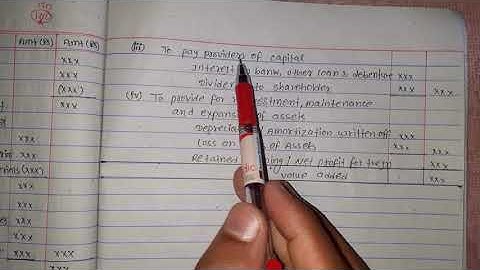 Amt(Rs) Amt(Rs)
xxx
xxx
(xxx)
xxx
xxx
xxx
xxx
xxx
xxx
(xxx)
xxx
xxx
xxx
xxx
xxx xxx
(iii) To pay providers of capital
Interest bank, other loans debenture xxx
Divide to shareholder xxx xxx
(iv) To provide for investment, maintenance
and expans of assets
Deprecia Amortization written off xxx
Loss on of Assets xxx
Retained ning / Net profit for the yr xxx xxx
value added xxx